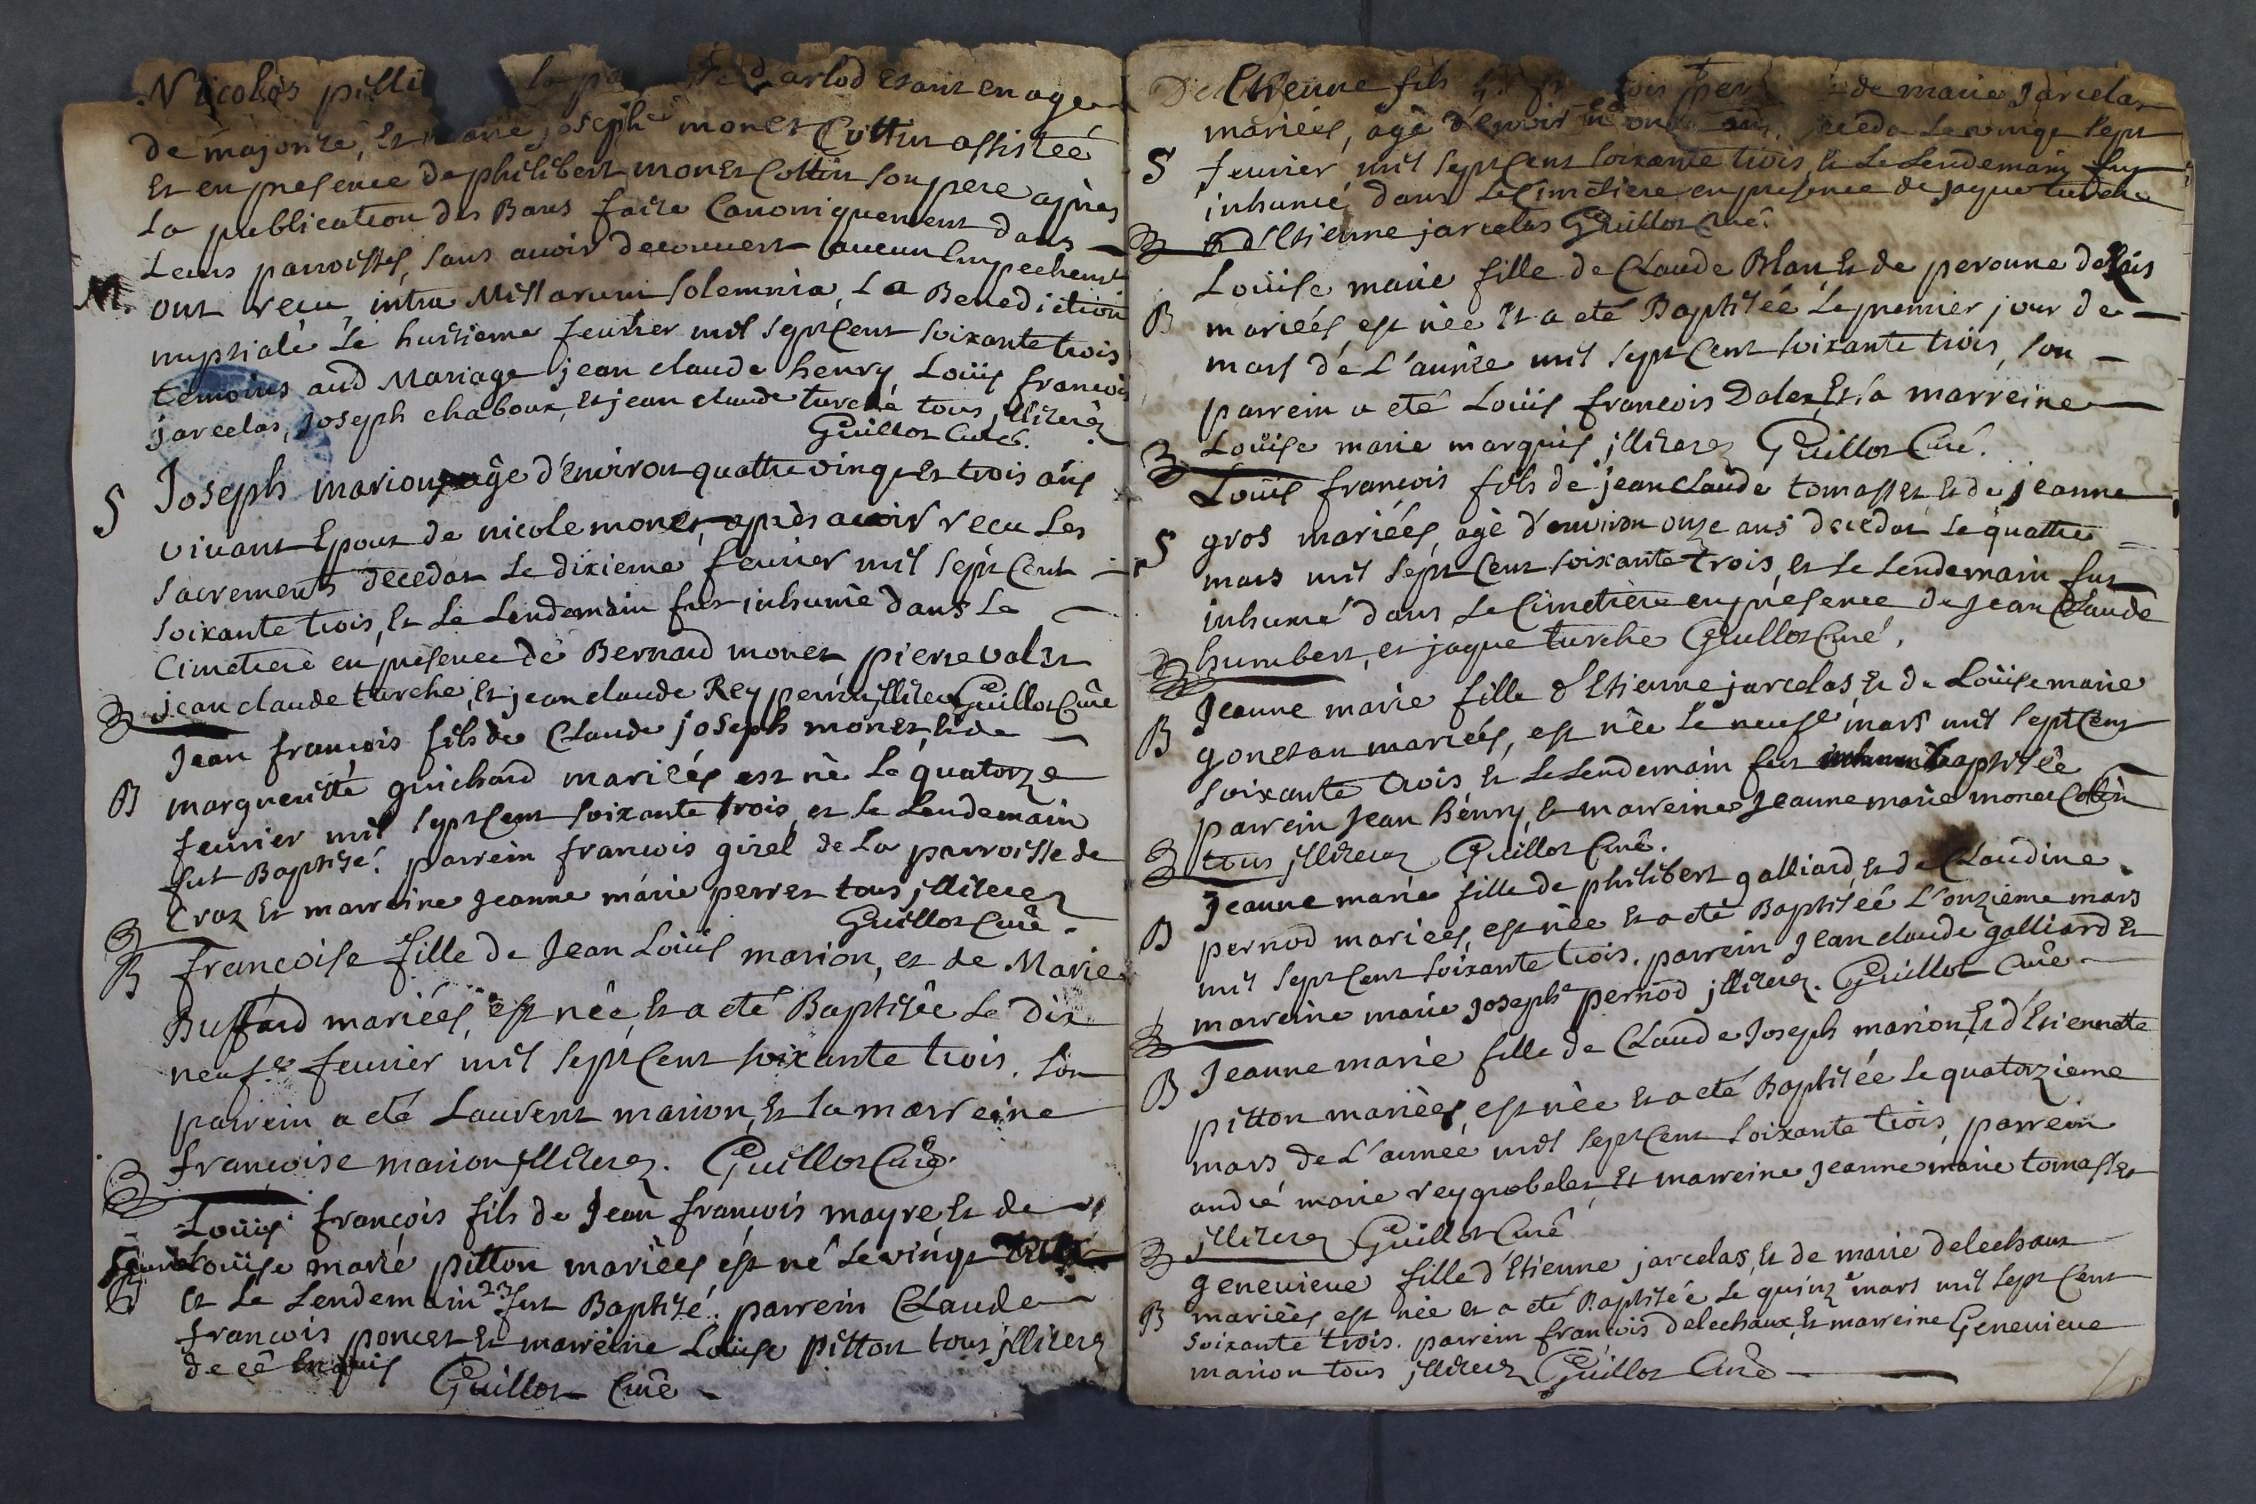 Nicolas pilli la pa de d'arlod Etant en age
de majorité, Et marie joseph^e monet Cottin assistéé
Et en presence de philibert monet Cottin son pere après
La publication des Bans faite Canoniquement dans
Leurs parroisses, sans avoir decouvert aucun Empechem^t
M. ont recu intra Missarum solemnia, La Benediction
nuptiale Le huitieme feuvrier mil sept Cent soixante trois
temoins aud Mariage jean claude henry, Loüis francois
jarcelas, Joseph chaboux, et jean claude turché tous jlliterez
Guillot Curé.
S Joseph marion age d'Environ quattre vingt Et trois ans
vivant Epoux de nicole monet, après avoir recu Les
sacrements decedat Le dixieme feuvrier mil sept Cent
soixante trois, Et Le Lendemain fut inhumé dans Le
Cimetiere en presence de Bernard monet pierre valet
jean claude turche, Et jean claude Rey perrin jlliterez Guillot Curé
Jean francois fils de Claude joseph monet, et de
B margueritte guichard mariéés est né Le quatorze
feuvrier mil sept Cent soixante trois et Le Lendemain
fut Baptisé. parrein francois girel de La parroisse de
Craz Et marreine Jeanne marie perret tous jlliterez
Guillot Curé.
B françoise fille de Jean Loüis marion, et de Marie
Buffard mariéés, est néé, Et a eté Baptiséé Le dix
neuf^e feuvrier mil sept Cent soixante trois. son
parrein a eté Laurent marion, Et sa marreine
francoise marion jlliterez. Guillot Curé.
Loüis françois fils de Jean francois mayre, Et de
Loüise marie pitton mariéés est né Le vingt
Et Le Lendemain 23 fut Baptisé. parrein Claude
francois poncet, Et marreine Louise pitton tous jlliterez
de ce Enquis Guillot Curé
Etienne fils de marie Jarcelas
mariéés, agé d'Environ Le vingt sept
S feuvrier mil sept Cent soixante trois, Et Le Lendemain fut
inhumé dans Le Cimetiere en presence de jaque turche
Et d'Etienne jarcelas Guillot Curé.
Loüise marie fille de Claude Blan, Et de peronne
B mariéés, est néé Et a eté Baptiséé Le premier jour de
mars de L'année mil sept Cent soixante trois, son
parrein a eté Loüis francois Dalex, Et sa marreine
Loüise marie marquis jlliterez Guillot Curé.
Loüis francois fils de jean claude tomasset Et de jeanne
S gros mariéés, agé d'environ onze ans decedat Le quattre
mars mil sept Cent soixante trois, et Le Lendemain fut
inhumé dans Le Cimetière en presence de Jean Claude
humbert, et jaque turche Guillot Curé.
Jeanne marie fille d'Etienne jarcelas, Et de Loüise marie
B gonetan mariéés, est néé Le neuf^e mars mil sept Cent
soixante trois Et Le Lendemain fut Baptiséé
parrein Jean henry, Et marreine Jeanne marie monet Cotin
tous jlliterez Guillot Curé.
Jeanne marie fille de philibert galliard, et de Claudine
B pernod mariéés, est néé Et a eté Baptiséé L'onzieme mars
mil sept Cent soixante trois. parrein Jean claude galliard Et
marreine marie joseph^e pernod jlliterez. Guillot Curé
B Jeanne marie fille de Claude Joseph marion, Et d'Etiennette
pitton mariéés, est néé Et a eté Baptiséé Le quatorzieme
mars de L'année mil sept Cent soixante trois, parrein
andré marie rey grobelet, Et marreine Jeanne marie tomasset
jlliterez Guillot Curé
genevieve fille d'Etienne jarcelas, Et de marie delechaux
B mariéés, est néé et a eté Baptiséé Le quinz^e mars mil sept Cent
soixante trois. parrein francois delechaux, Et marreine Genevieve
marion tous jlliterez Guillot Curé